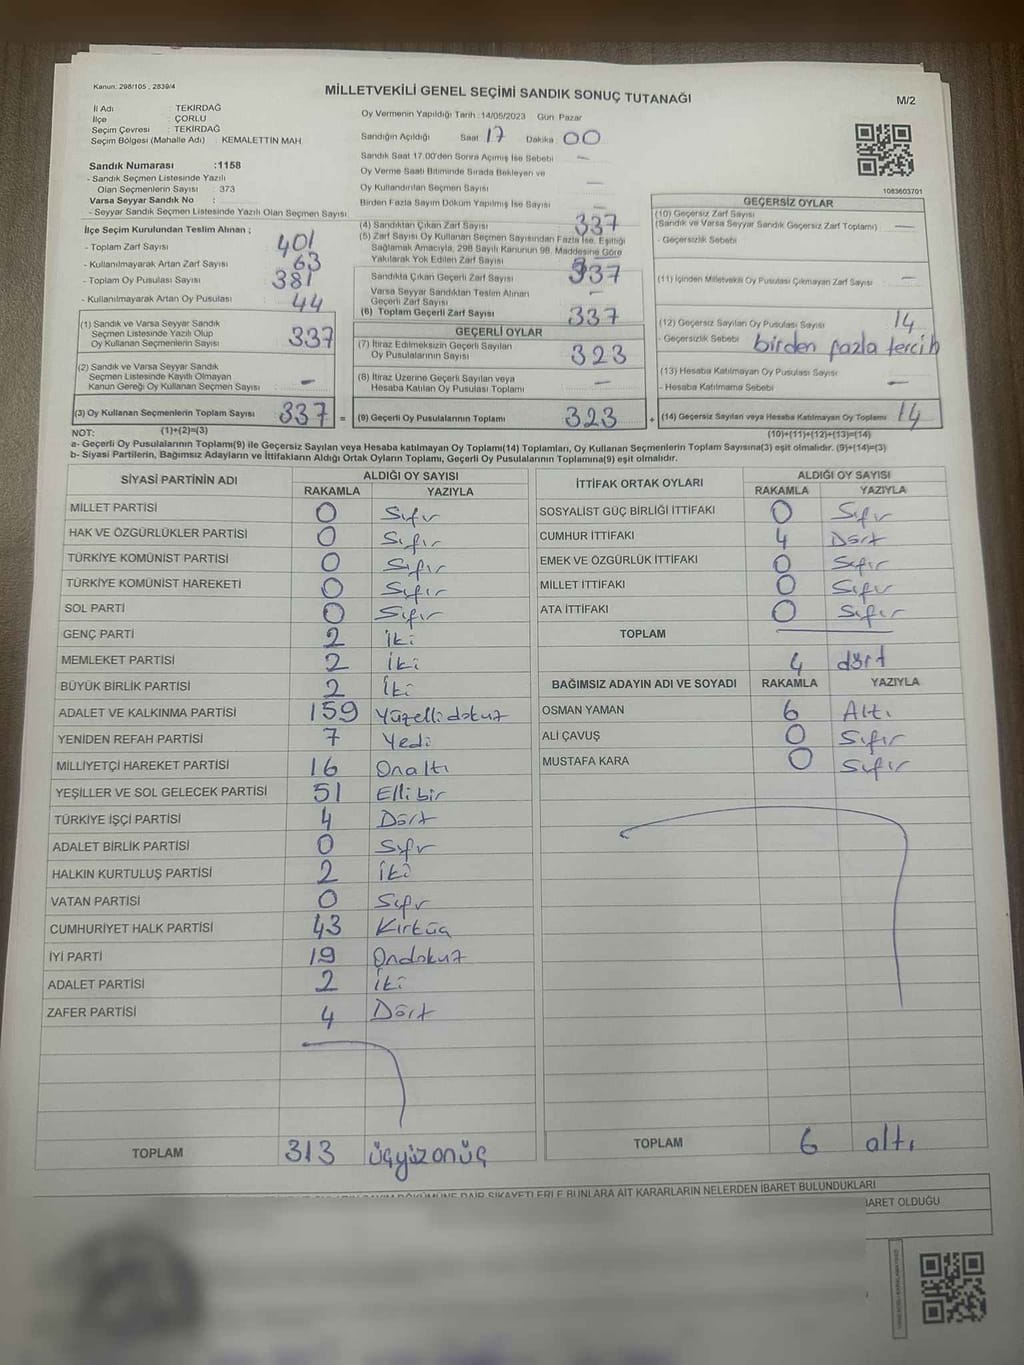 Kanun: 298/105 , 2839/4
MİLLETVEKİLİ GENEL SEÇİMİ SANDIK SONUÇ TUTANAĞI
M/2
İl Adı : TEKİRDAĞ
İlçe : ÇORLU
Seçim Çevresi : TEKİRDAĞ
Seçim Bölgesi (Mahalle Adı) : KEMALETTİN MAH.
Sandık Numarası :1158
- Sandık Seçmen Listesinde Yazılı
Olan Seçmenlerin Sayısı : 373
Varsa Seyyar Sandık No :
- Seyyar Sandık Seçmen Listesinde Yazılı Olan Seçmen Sayısı
Oy Vermenin Yapıldığı Tarih :14/05/2023 Gün: Pazar
Sandığın Açıldığı Saat 17 Dakika 00
Sandık Saat 17.00'den Sonra Açımış İse Sebebi –
Oy Verme Saati Bitiminde Sırada Bekleyen ve
Oy Kullandırılan Seçmen Sayısı –
Birden Fazla Sayım Döküm Yapılmış İse Sayısı –
1083603701
İlçe Seçim Kurulundan Teslim Alınan ;
- Toplam Zarf Sayısı 401
- Kullanılmayarak Artan Zarf Sayısı 63
- Toplam Oy Pusulası Sayısı 381
- Kullanılmayarak Artan Oy Pusulası 44
(1) Sandık ve Varsa Seyyar Sandık
Seçmen Listesinde Yazılı Olup
Oy Kullanan Seçmenlerin Sayısı 337
(2) Sandık ve Varsa Seyyar Sandık
Seçmen Listesinde Kayıtlı Olmayan
Kanun Gereği Oy Kullanan Seçmen Sayısı –
(3) Oy Kullanan Seçmenlerin Toplam Sayısı 337 =
(1)+(2)=(3)
(4) Sandıktan Çıkan Zarf Sayısı 337
(5) Zarf Sayısı Oy Kullanan Seçmen Sayısından Fazla İse, Eşitliği
Sağlamak Amacıyla, 298 Sayılı Kanunun 98. Maddesine Göre
Yakılarak Yok Edilen Zarf Sayısı
Sandıkta Çıkan Geçerli Zarf Sayısı 337
Varsa Seyyar Sandıktan Teslim Alınan
Geçerli Zarf Sayısı –
(6) Toplam Geçerli Zarf Sayısı 337
GEÇERLİ OYLAR
(7) İtiraz Edilmeksizin Geçerli Sayılan
Oy Pusulalarının Sayısı 323
(8) İtiraz Üzerine Geçerli Sayılan veya
Hesaba Katılan Oy Pusulası Toplamı –
(9) Geçerli Oy Pusulalarının Toplamı 323 +
GEÇERSİZ OYLAR
(10) Geçersiz Zarf Sayısı
(Sandık ve Varsa Seyyar Sandık Geçersiz Zarf Toplamı) –
- Geçersizlik Sebebi
(11) İçinden Milletvekili Oy Pusulası Çıkmayan Zarf Sayısı –
(12) Geçersiz Sayılan Oy Pusulası Sayısı 14
- Geçersizlik Sebebi birden fazla tercih
(13) Hesaba Katılmayan Oy Pusulası Sayısı
- Hesaba Katılmama Sebebi –
(14) Geçersiz Sayılan veya Hesaba Katılmayan Oy Toplamı 14
(10)+(11)+(12)+(13)=(14)
NOT:
a- Geçerli Oy Pusulalarının Toplamı(9) ile Geçersiz Sayılan veya Hesaba katılmayan Oy Toplamı(14) Toplamları, Oy Kullanan Seçmenlerin Toplam Sayısına(3) eşit olmalıdır. (9)+(14)=(3)
b- Siyasi Partilerin, Bağımsız Adayların ve İttifakların Aldığı Ortak Oyların Toplamı, Geçerli Oy Pusulalarının Toplamına(9) eşit olmalıdır.
SİYASİ PARTİNİN ADI ALDIĞI OY SAYISI
RAKAMLA YAZIYLA
MİLLET PARTİSİ 0 Sıfır
HAK VE ÖZGÜRLÜKLER PARTİSİ 0 Sıfır
TÜRKİYE KOMÜNİST PARTİSİ 0 Sıfır
TÜRKİYE KOMÜNİST HAREKETİ 0 Sıfır
SOL PARTİ 0 Sıfır
GENÇ PARTİ 2 İki
MEMLEKET PARTİSİ 2 İki
BÜYÜK BİRLİK PARTİSİ 2 İki
ADALET VE KALKINMA PARTİSİ 159 Yüzellidokuz
YENİDEN REFAH PARTİSİ 7 Yedi
MİLLİYETÇİ HAREKET PARTİSİ 16 Onaltı
YEŞİLLER VE SOL GELECEK PARTİSİ 51 Ellibir
TÜRKİYE İŞÇİ PARTİSİ 4 Dört
ADALET BİRLİK PARTİSİ 0 Sıfır
HALKIN KURTULUŞ PARTİSİ 2 İki
VATAN PARTİSİ 0 Sıfır
CUMHURİYET HALK PARTİSİ 43 Kırküç
İYİ PARTİ 19 Ondokuz
ADALET PARTİSİ 2 İki
ZAFER PARTİSİ 4 Dört
TOPLAM 313 üçyüzonüç
İTTİFAK ORTAK OYLARI ALDIĞI OY SAYISI
RAKAMLA YAZIYLA
SOSYALİST GÜÇ BİRLİĞİ İTTİFAKI 0 Sıfır
CUMHUR İTTİFAKI 4 Dört
EMEK VE ÖZGÜRLÜK İTTİFAKI 0 Sıfır
MİLLET İTTİFAKI 0 Sıfır
ATA İTTİFAKI 0 Sıfır
TOPLAM
4 dört
BAĞIMSIZ ADAYIN ADI VE SOYADI RAKAMLA YAZIYLA
OSMAN YAMAN 6 Altı
ALİ ÇAVUŞ 0 Sıfır
MUSTAFA KARA 0 Sıfır
TOPLAM 6 altı
DAİR ŞİKAYETLERLE BUNLARA AİT KARARLARIN NELERDEN İBARET BULUNDUKLARI
İBARET OLDUĞU